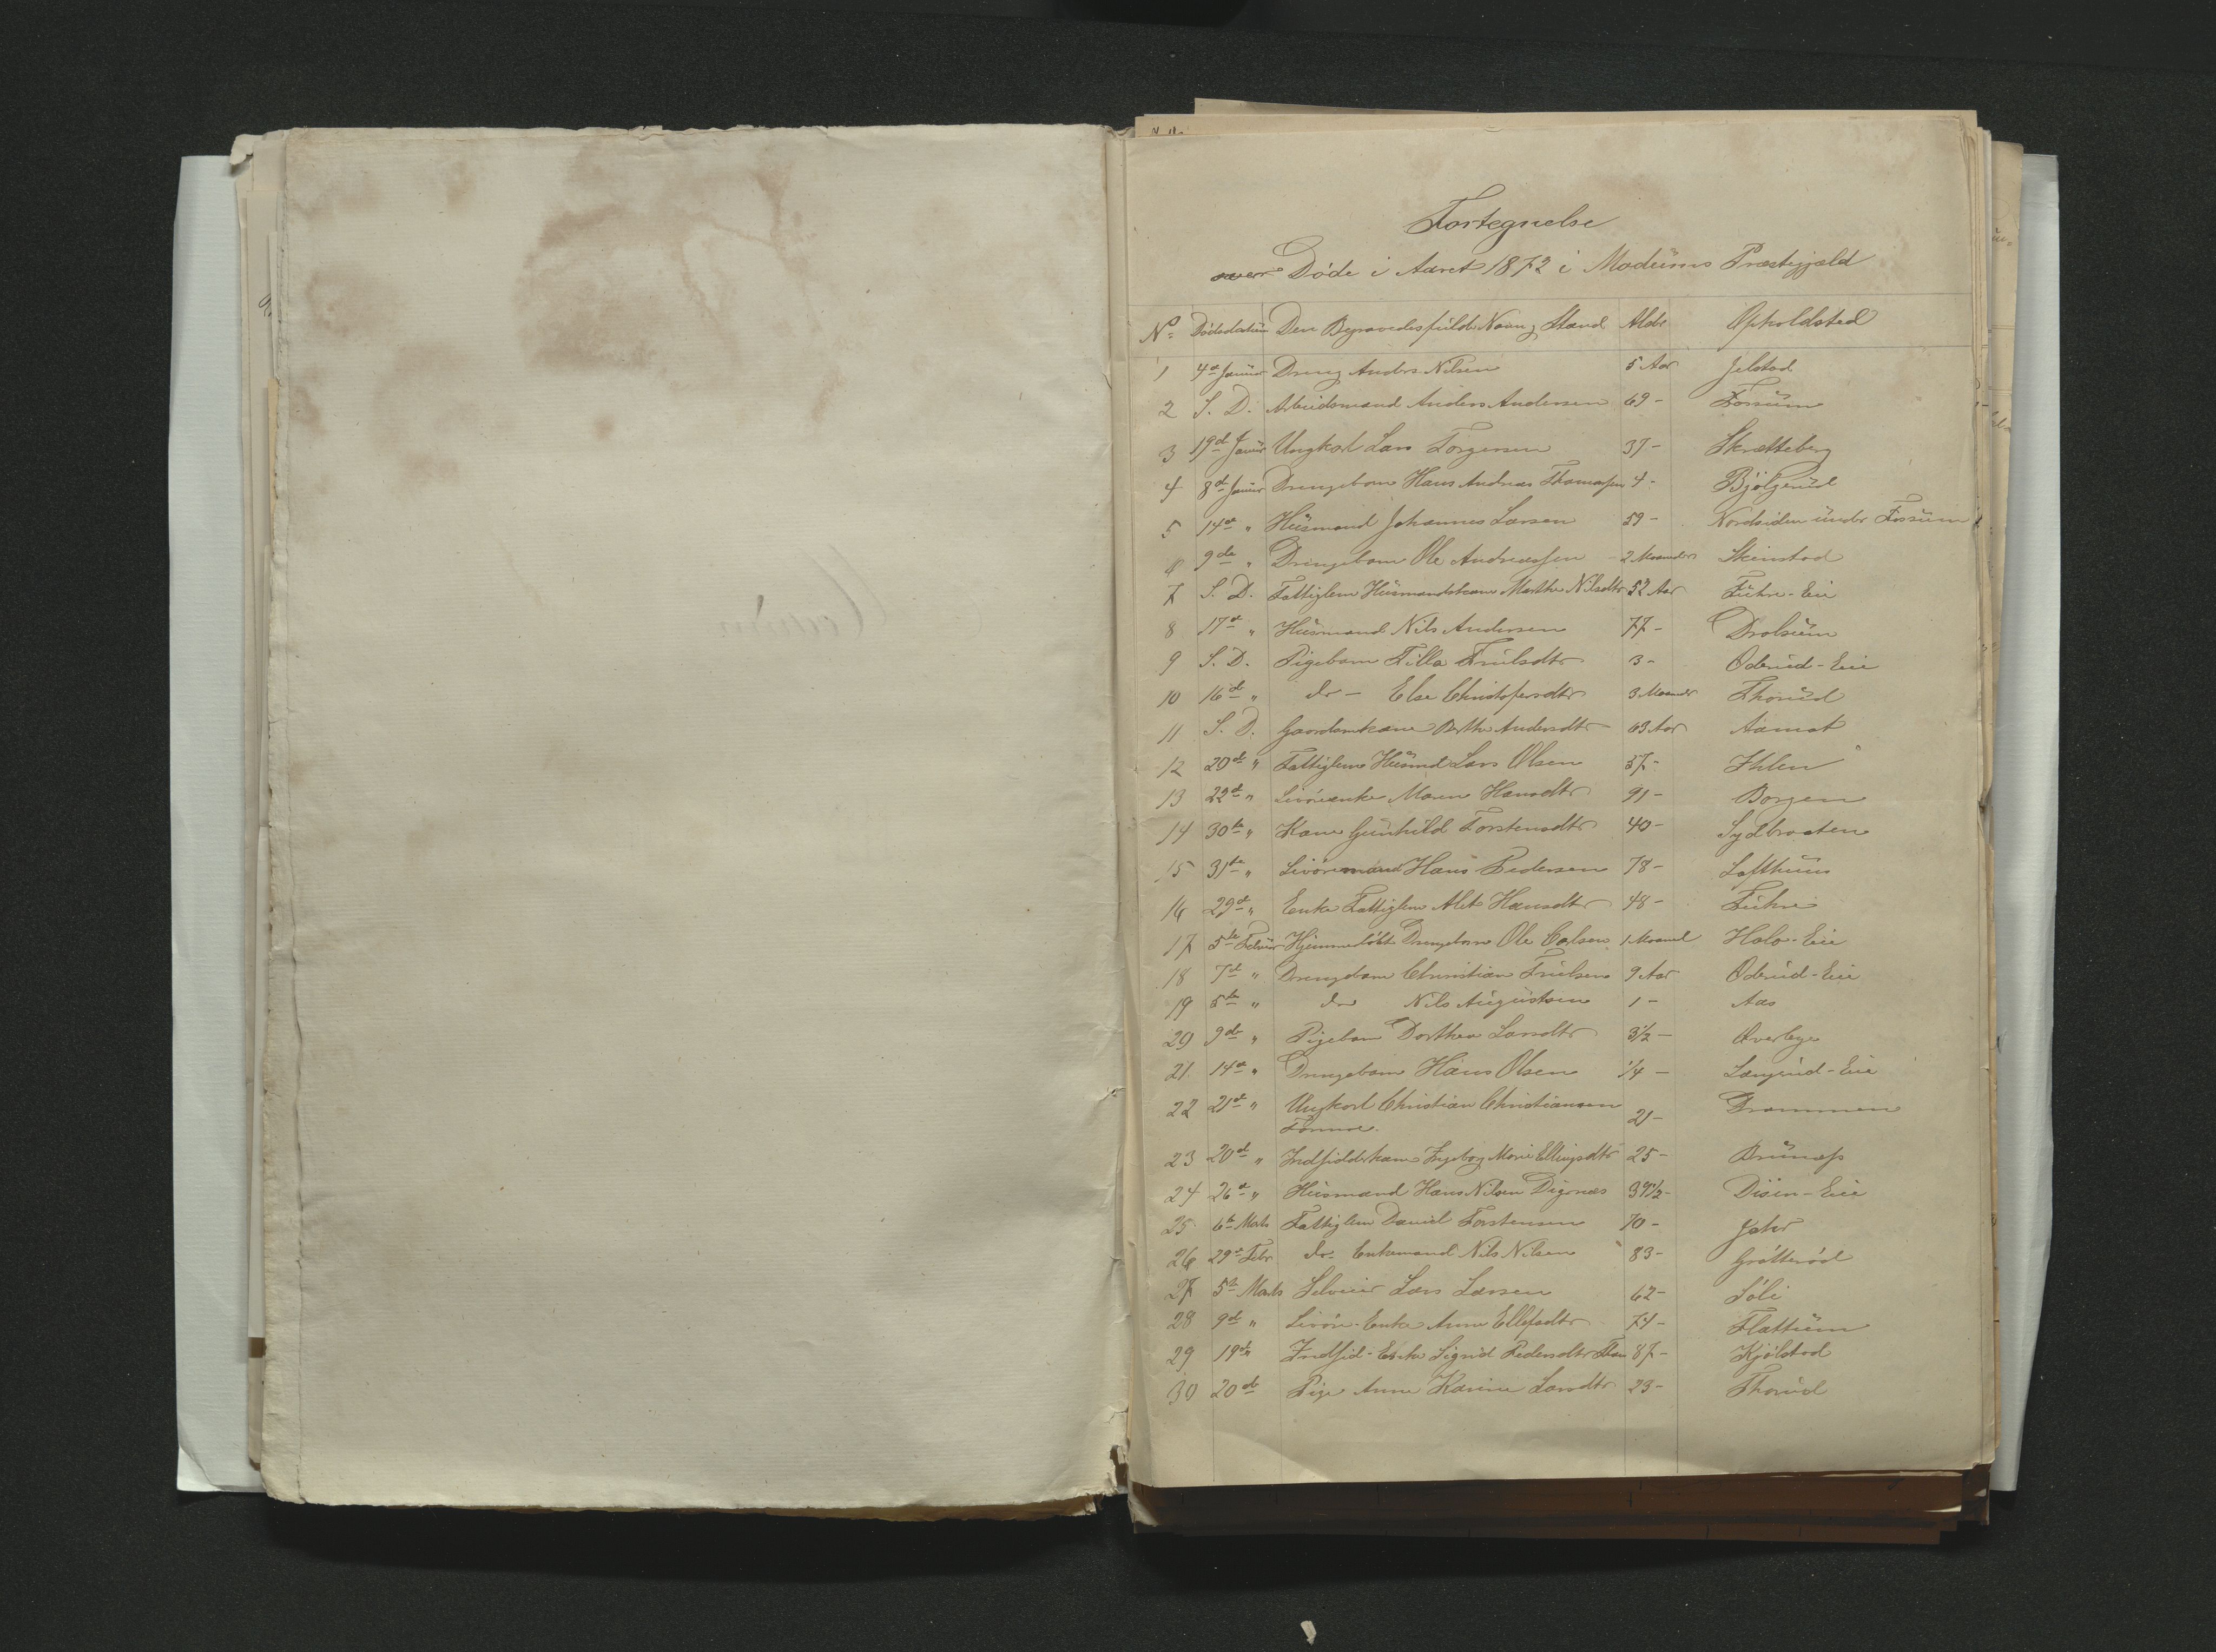 Fortegnelse
over Døde i Aaret 1872 i Modums Præstegjæld
No Dødsdatum Den Begravedes fulde Navn, Stand Alder Opholdsted
1 4de Januar Dreng Anders Nilsen 5 Aar Jelstad
2 S. D. Arbeidsmand Anders Andersen 69 - Fossum
3 19de Januar Ungkarl Lars Torgersen 37 - Skretteberg
4 8de Januar Drengebarn Hans Andreas Thomassen 4 - Bjølgerud
5 14de " Husmand Johannes Larsen 59 - Nordsiden under Fossum
6 9de " Drengebarn Ole Andreassen 2 Maaneder Skinstad
7 S. D. Fattiglem Husmandskone Marthe Nilsdtr 52 Aar Fuhre-Eie
8 17de " Husmand Nils Andersen 77 - Drolsum
9 S. D. Pigebarn Tilla Trulsdtr 3 - Oderud-Eie
10 16de " do - Else Christofersdtr 3 Maaneder Thorud
11 S. D. Gaardmkone Berthe Andersdtr 63 Aar Aamot
12 20de " Fattiglem Husmd Lars Olsen 57 - Ihlen
13 22de " Livøreenke Maren Hansdtr 91 - Borgen
14 30te " Kone Gunhild Torstensdtr 40 - Sydbraaten
15 31te " Livøremand Hans Pedersen 78 - Lofthuus
16 29de " Enke Fattiglem Alet Hansdtr 48 - Fuhre
17 5te Februar Hjemmedøbt Drengebarn Ole Carlsen 1 Maaned Holo-Eie
18 7de " Drengebarn Christian Trulsen 9 Aar Oderud-Eie
19 5te " do Nils Augustsen 1 - Aas
20 9de " Pigebarn Dorthea Larsdtr 3½ - Overbye
21 14de " Drengebarn Hans Olsen ¼ - Langerud-Eie
22 21de " Ungkarl Christian Christiansen 21 - Drammen
Tømme
23 20de " Indsidderkone Ingeborg Marie Ellingsdtr 25 - Brunæss
24 26de " Husmand Hans Nilsen Digernes 39½ - Disen-Eie
25 6te Marts Fattiglem Daniel Torstensen 70 - Jahr
26 29de Febr do Enkemand Nils Nilsen 83 - Grøtterød
27 5te Marts Selveier Lars Larsen 62 - Søli
28 9de " Livøre-Enke Anne Ellefsdtr 71 - Flattum
29 19de " Indsid-Enke Sigrid Pedersdtr 87 - Kjølstad
30 20de Pige Anne Karine Larsdtr 23 - Thorud